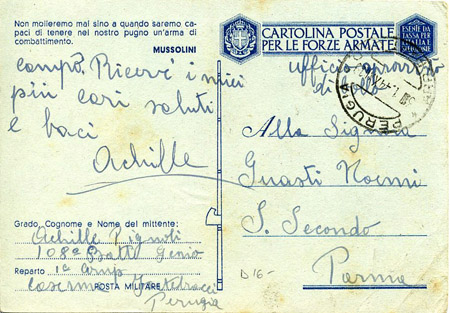 Non molleremo mai sino a quando saremo ca-
paci di tenere nel nostro pugno un'arma di
combattimento.
MUSSOLINI
campo. Ricevi i miei
più cari saluti
e baci
Achille
Grado Cognome e Nome del mittente:
Achille Pignoli
108° Batt. Genio
Reparto 1a Comp
Caserma
POSTA MILITARE
Perugia
CARTOLINA POSTALE
PER LE FORZE ARMATE
ESENTE DA
TASSA PER
ufficio
di bollo
PERUGIA
Alla Signora
Guasti Noemi
S. Secondo
Parma
D 16-